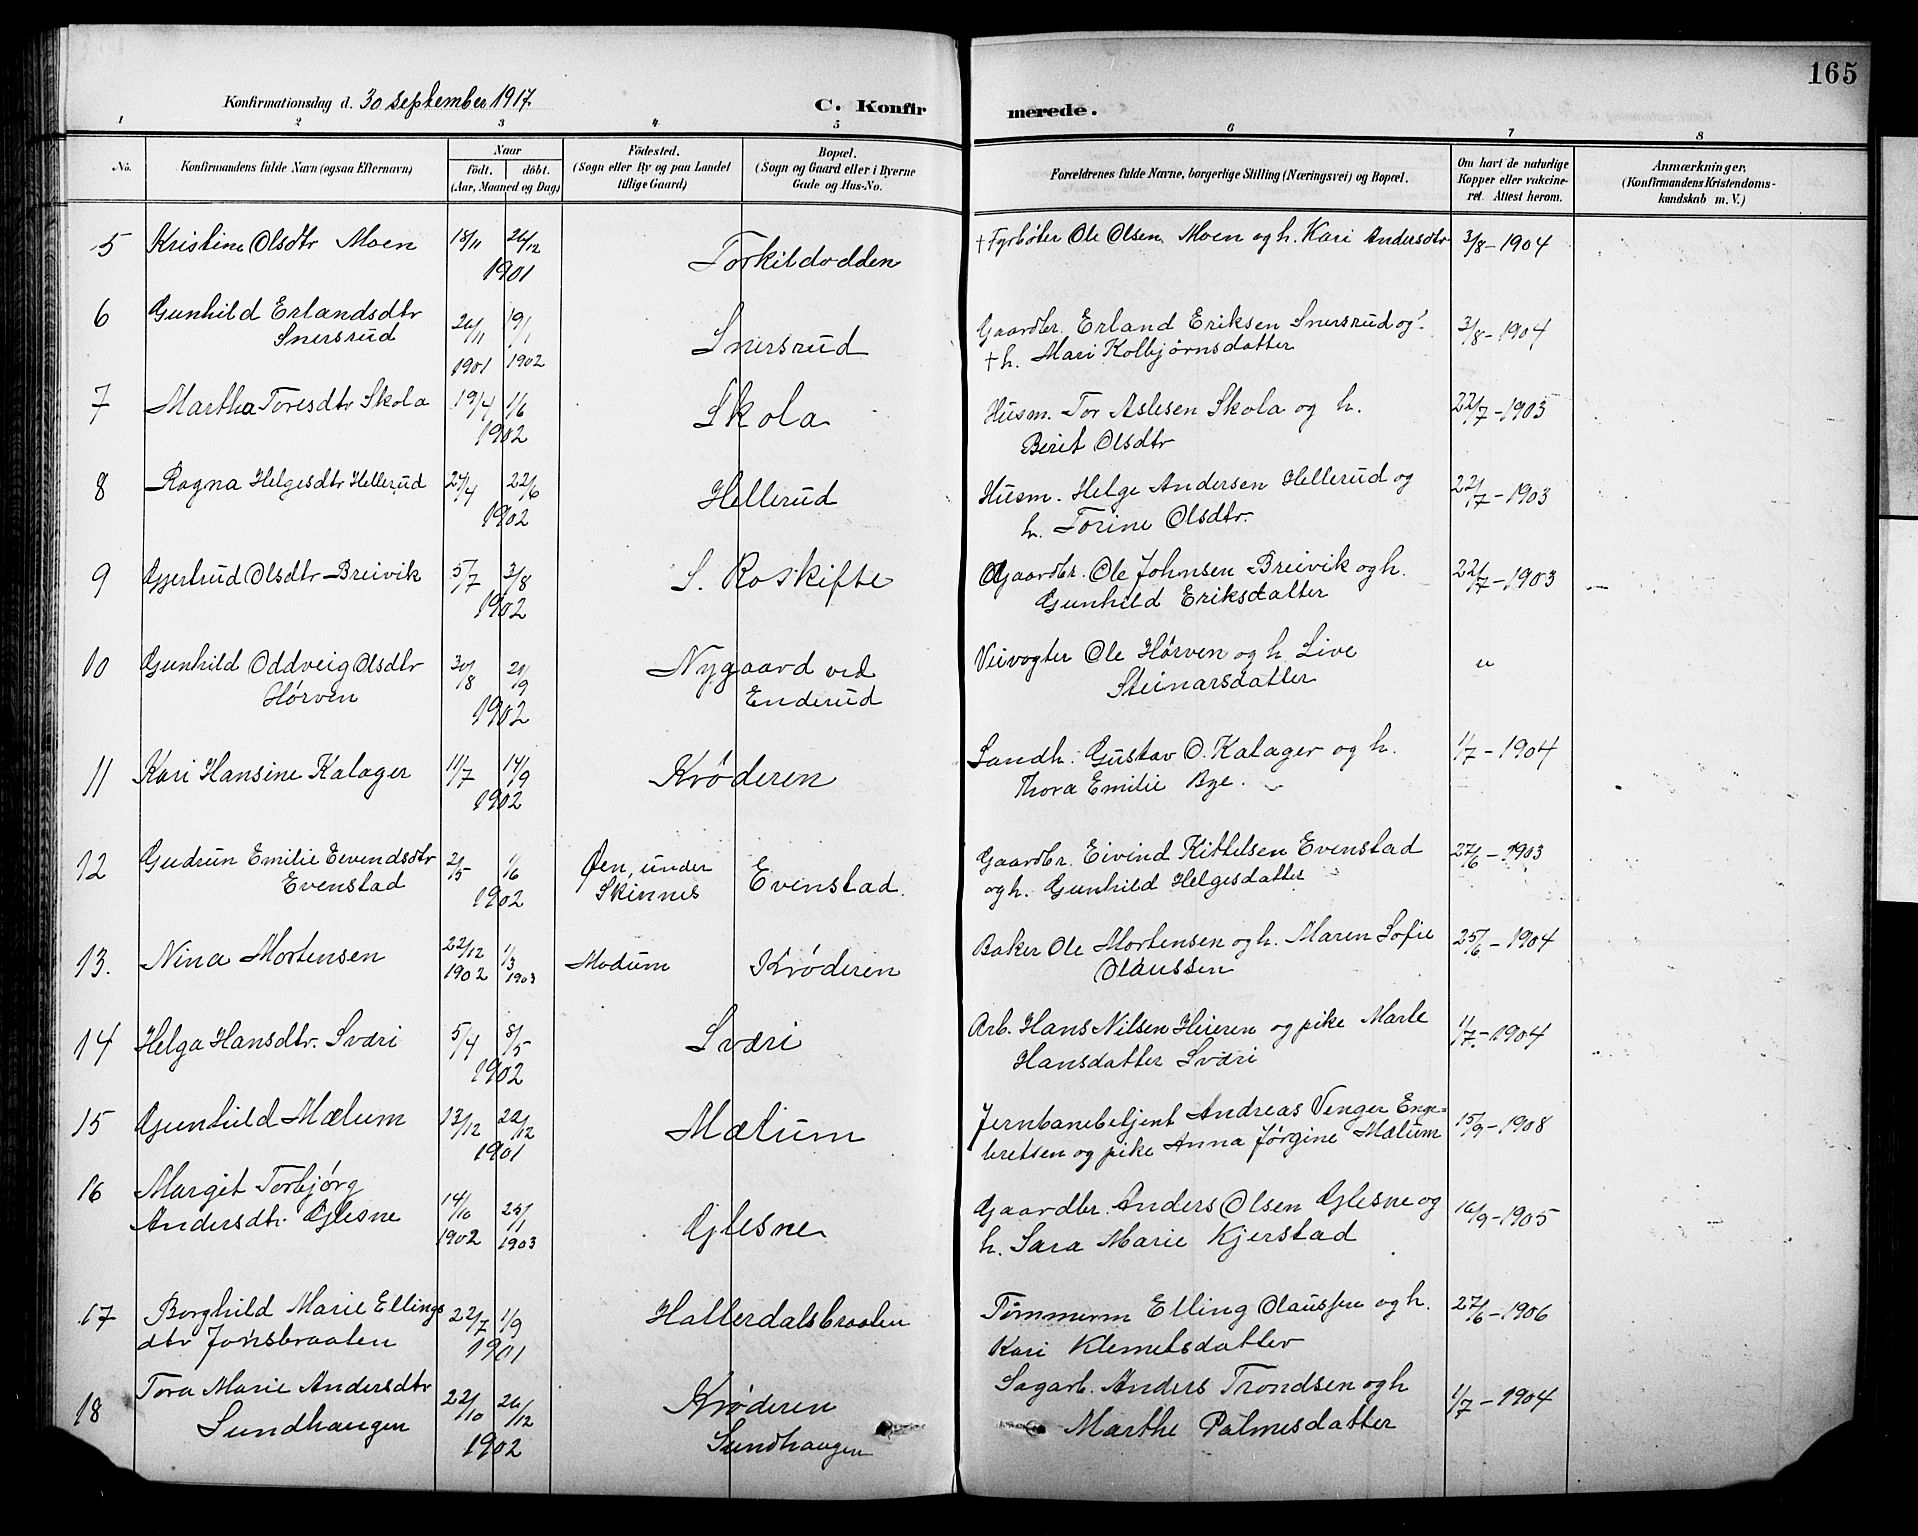 165
Konfirmationsdag d. 30 september 1917. C. Konfirmerede.
1 2 3 4 5 6 7 8
No. Konfirmandens fulde Navn (ogsaa Efternavn) Naar födt. döbt. (Aar, Maaned og Dag) Födested. (Sogn eller By og paa Landet tillige Gaard) Bopæl. (Sogn og Gaard eller i Byerne Gade og Hus-No. Forældrenes fulde Navne, borgerlige Stilling (Næringsvei) og Bopæl. Om havt de naturlige Kopper eller vakcineret. Attest herom. Anmærkninger. (Konfirmandens Kristendomskundskab m. V.)
5 Kristine Olsdtr Moen 18/11 26/12 1901 Torkildodden † Fyrbøter Ole Olsen Moen og h. Kari Andersdtr 3/8 - 1904
6 Gunhild Erlandsdtr Snersrud 26/11 1901 19/1 1902 Snersrud Gaardbr. Erland Eriksen Snersrud og † h. Mari Kolbjørnsdatter 3/8 - 1904
7 Martha Toresdtr Skola 19/4 1/6 1902 Skola Husm. Tor Aslesen Skola og h. Berit Olsdtr 22/7 - 1903
8 Ragna Helgesdtr Hellerud 27/4 22/6 1902 Hellerud Husm. Helge Andersen Hellerud og h. Torine Olsdtr. 22/7 - 1903
9 Gjertrud Olsdtr Breivik 5/7 3/8 1902 S. Roskifte Gaardbr. Ole Johnsen Breivik og h. Gunhild Eriksdatter 22/7 - 1903
10 Gunhild Oddveig Olsdtr Hørven 30/8 21/9 1902 Nygaard ved Enderud Veivogter Ole Hørven og h. Live Steinarsdatter "
11 Kari Hansine Kalager 11/7 14/9 1902 Krøderen Landh. Gustav O. Kalager og h. Thora Emilie Bye. 1/7 - 1904
12 Gudrun Emilie Eevendsdtr Evenstad 2/5 1/6 1902 Øen, under Skinnes Evenstad. Gaardbr. Eivind Kittelsen Evenstad og h. Gunhild Helgesdatter 27/6 - 1903
13. Nina Mortensen 22/12 1902 1/3 1903 Modum Krøderen Baker Ole Mortensen og h. Maren Sofie Olaussen 25/6 - 1904
14 Helga Hansdtr. Sværi 5/4 8/5 1902 Sværi Arb. Hans Nilsen Heieren og pike Marte Hansdatter Sværi 1/7 - 1904
15 Gunhild Mælum 13/12 22/12 1901 Mælum Jernbanebetjent Andreas Venger Engebretsen og pike Anna Jørgine Mælum 15/9 - 1908
16 Margit Torbjørg Andersdtr. Glesne 14/10 1902 25/1 1903 Glesne Gaardbr. Anders Olsen Glesne og h. Sara Marie Kjerstad 16/9 - 1905
17 Borghild Marie Ellingsdtr Jonsbraaten 22/7 1/9 1901 Hallerdalsbraaten Tømmerm Elling Olaussen og h. Kari Klemetsdatter 27/6 - 1906
18 Tora Marie Andersdtr Sundhaugen 22/10 26/12 1902 Krøderen Sundhaugen Sagarb. Anders Trondsen og h Marthe Palmesdatter 1/7 - 1904